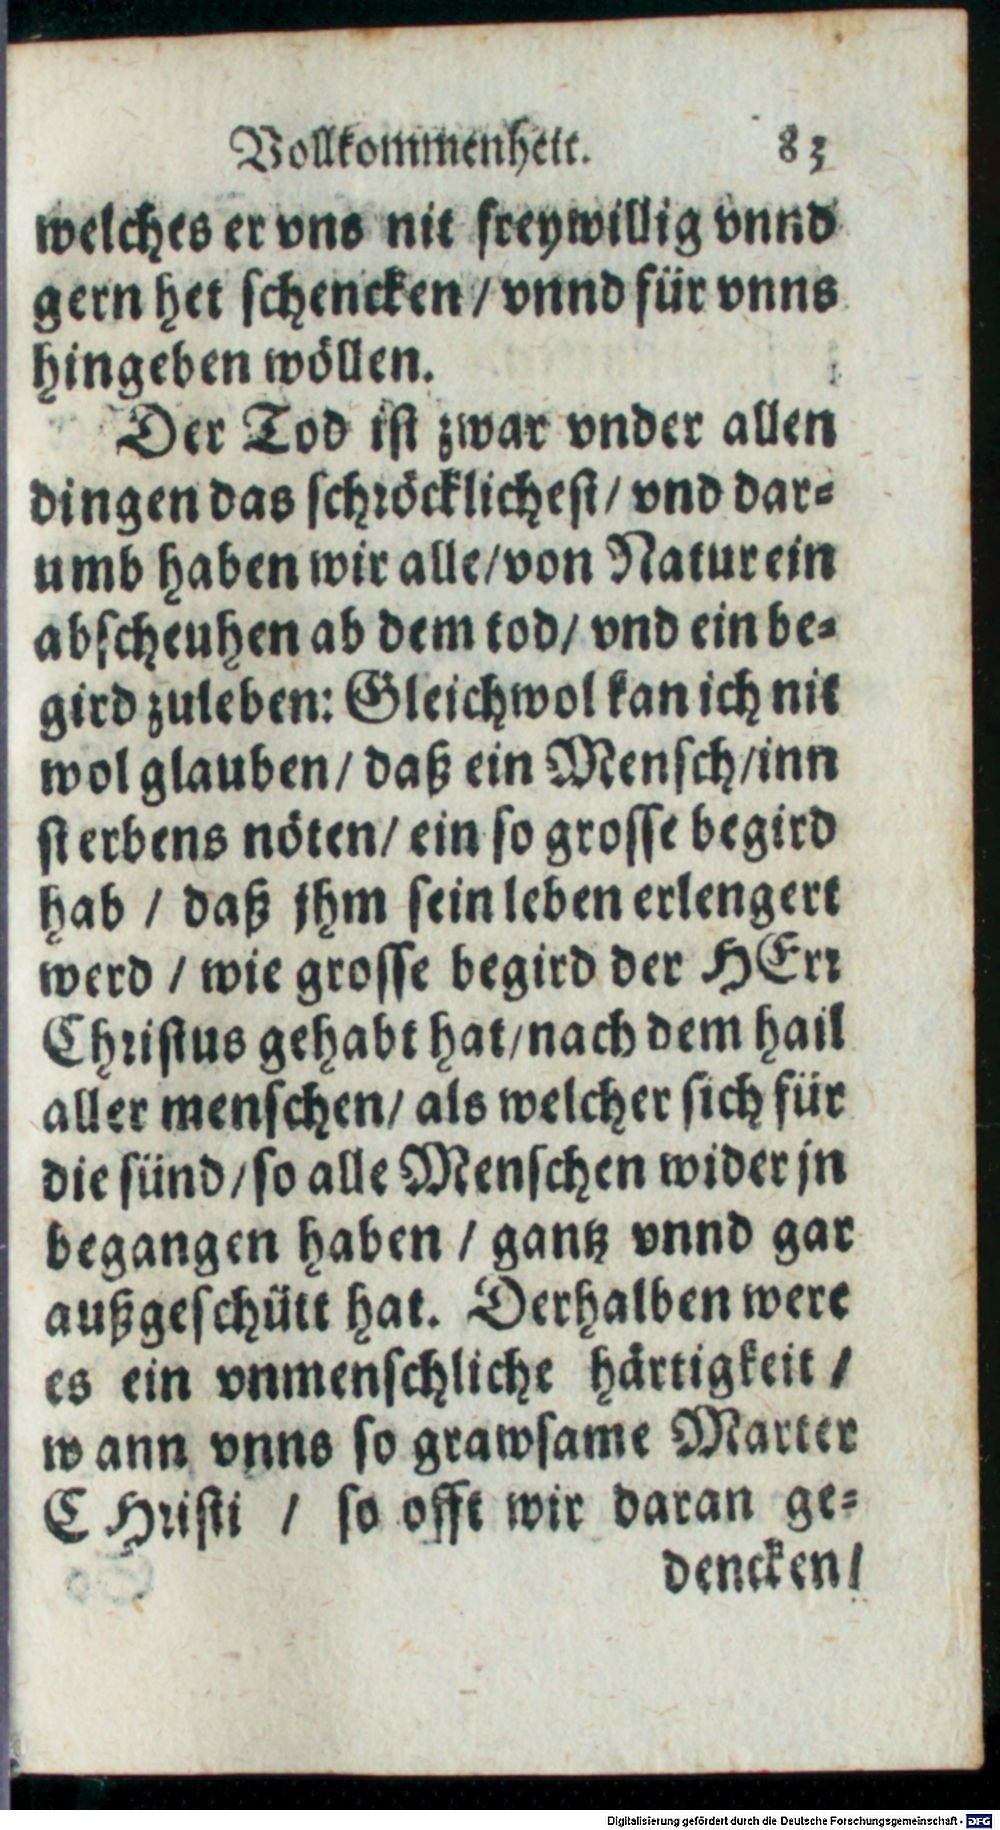 Vollkommenheit. 83
welches er vns nit freywillig vnnd
gern het schencken / vnnd für vnns
hingeben wöllen.
Der Tod ist zwar vnder allen
dingen das schröcklichest / vnd dar-
umb haben wir alle / von Natur ein
abscheuhen ab dem tod / vnd ein be-
gird zuleben: Gleichwol kan ich nit
wol glauben / daß ein Mensch / inn
sterbens nöten / ein so grosse begird
hab / daß jhm sein leben erlengert
werd / wie grosse begird der HErr
Christus gehabt hat / nach dem hail
aller menschen / als welcher sich für
die sünd / so alle Menschen wider jn
begangen haben / gantz vnnd gar
außgeschütt hat. Derhalben were
es ein vnmenschliche härtigkeit /
wann vnns so grawsame Marter
CHristi / so offt wir daran ge-
dencken /
Digitalisierung gefördert durch die Deutsche Forschungsgemeinschaft - DFG